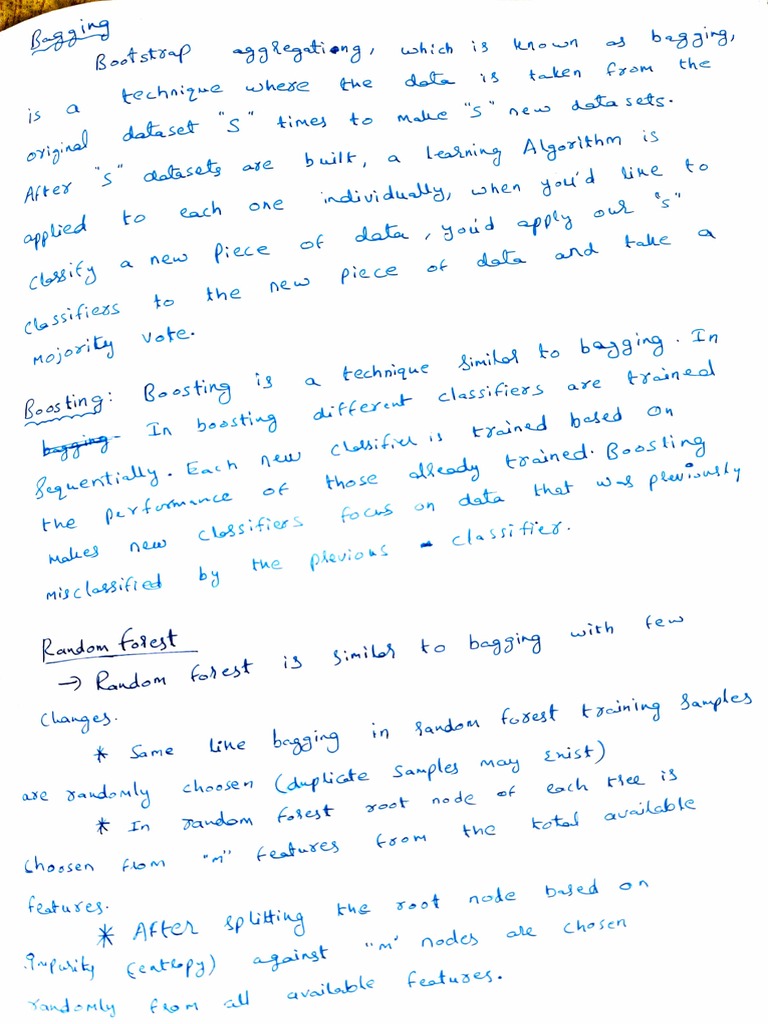 Bagging
Bootstrap aggregationg, which is known as bagging,
is a technique where the data is taken from the
original dataset "S" times to make "S" new datasets.
After "s" datasets are built, a learning Algorithm is
applied to each one individually, when you'd like to
classify a new piece of data, you'd apply our "s"
classifiers to the new piece of data and take a
mojority vote.
Boosting: Boosting is a technique similar to bagging. In
bagging In boosting different classifiers are trained
sequentially. Each new classifier is trained based on
the performance of those already trained. Boosting
makes new classifiers focus on data that was previously
misclassified by the previous classifier.
Random Forest
→ Random forest is similar to bagging with few
changes.
* Same like bagging in random forest training samples
are randomly choosen (duplicate samples may exist)
* In random forest root node of each tree is
choosen from "m" features from the total available
features.
* After splitting the root node based on
impurity (entropy) against "m" nodes are chosen
randomly from all available features.